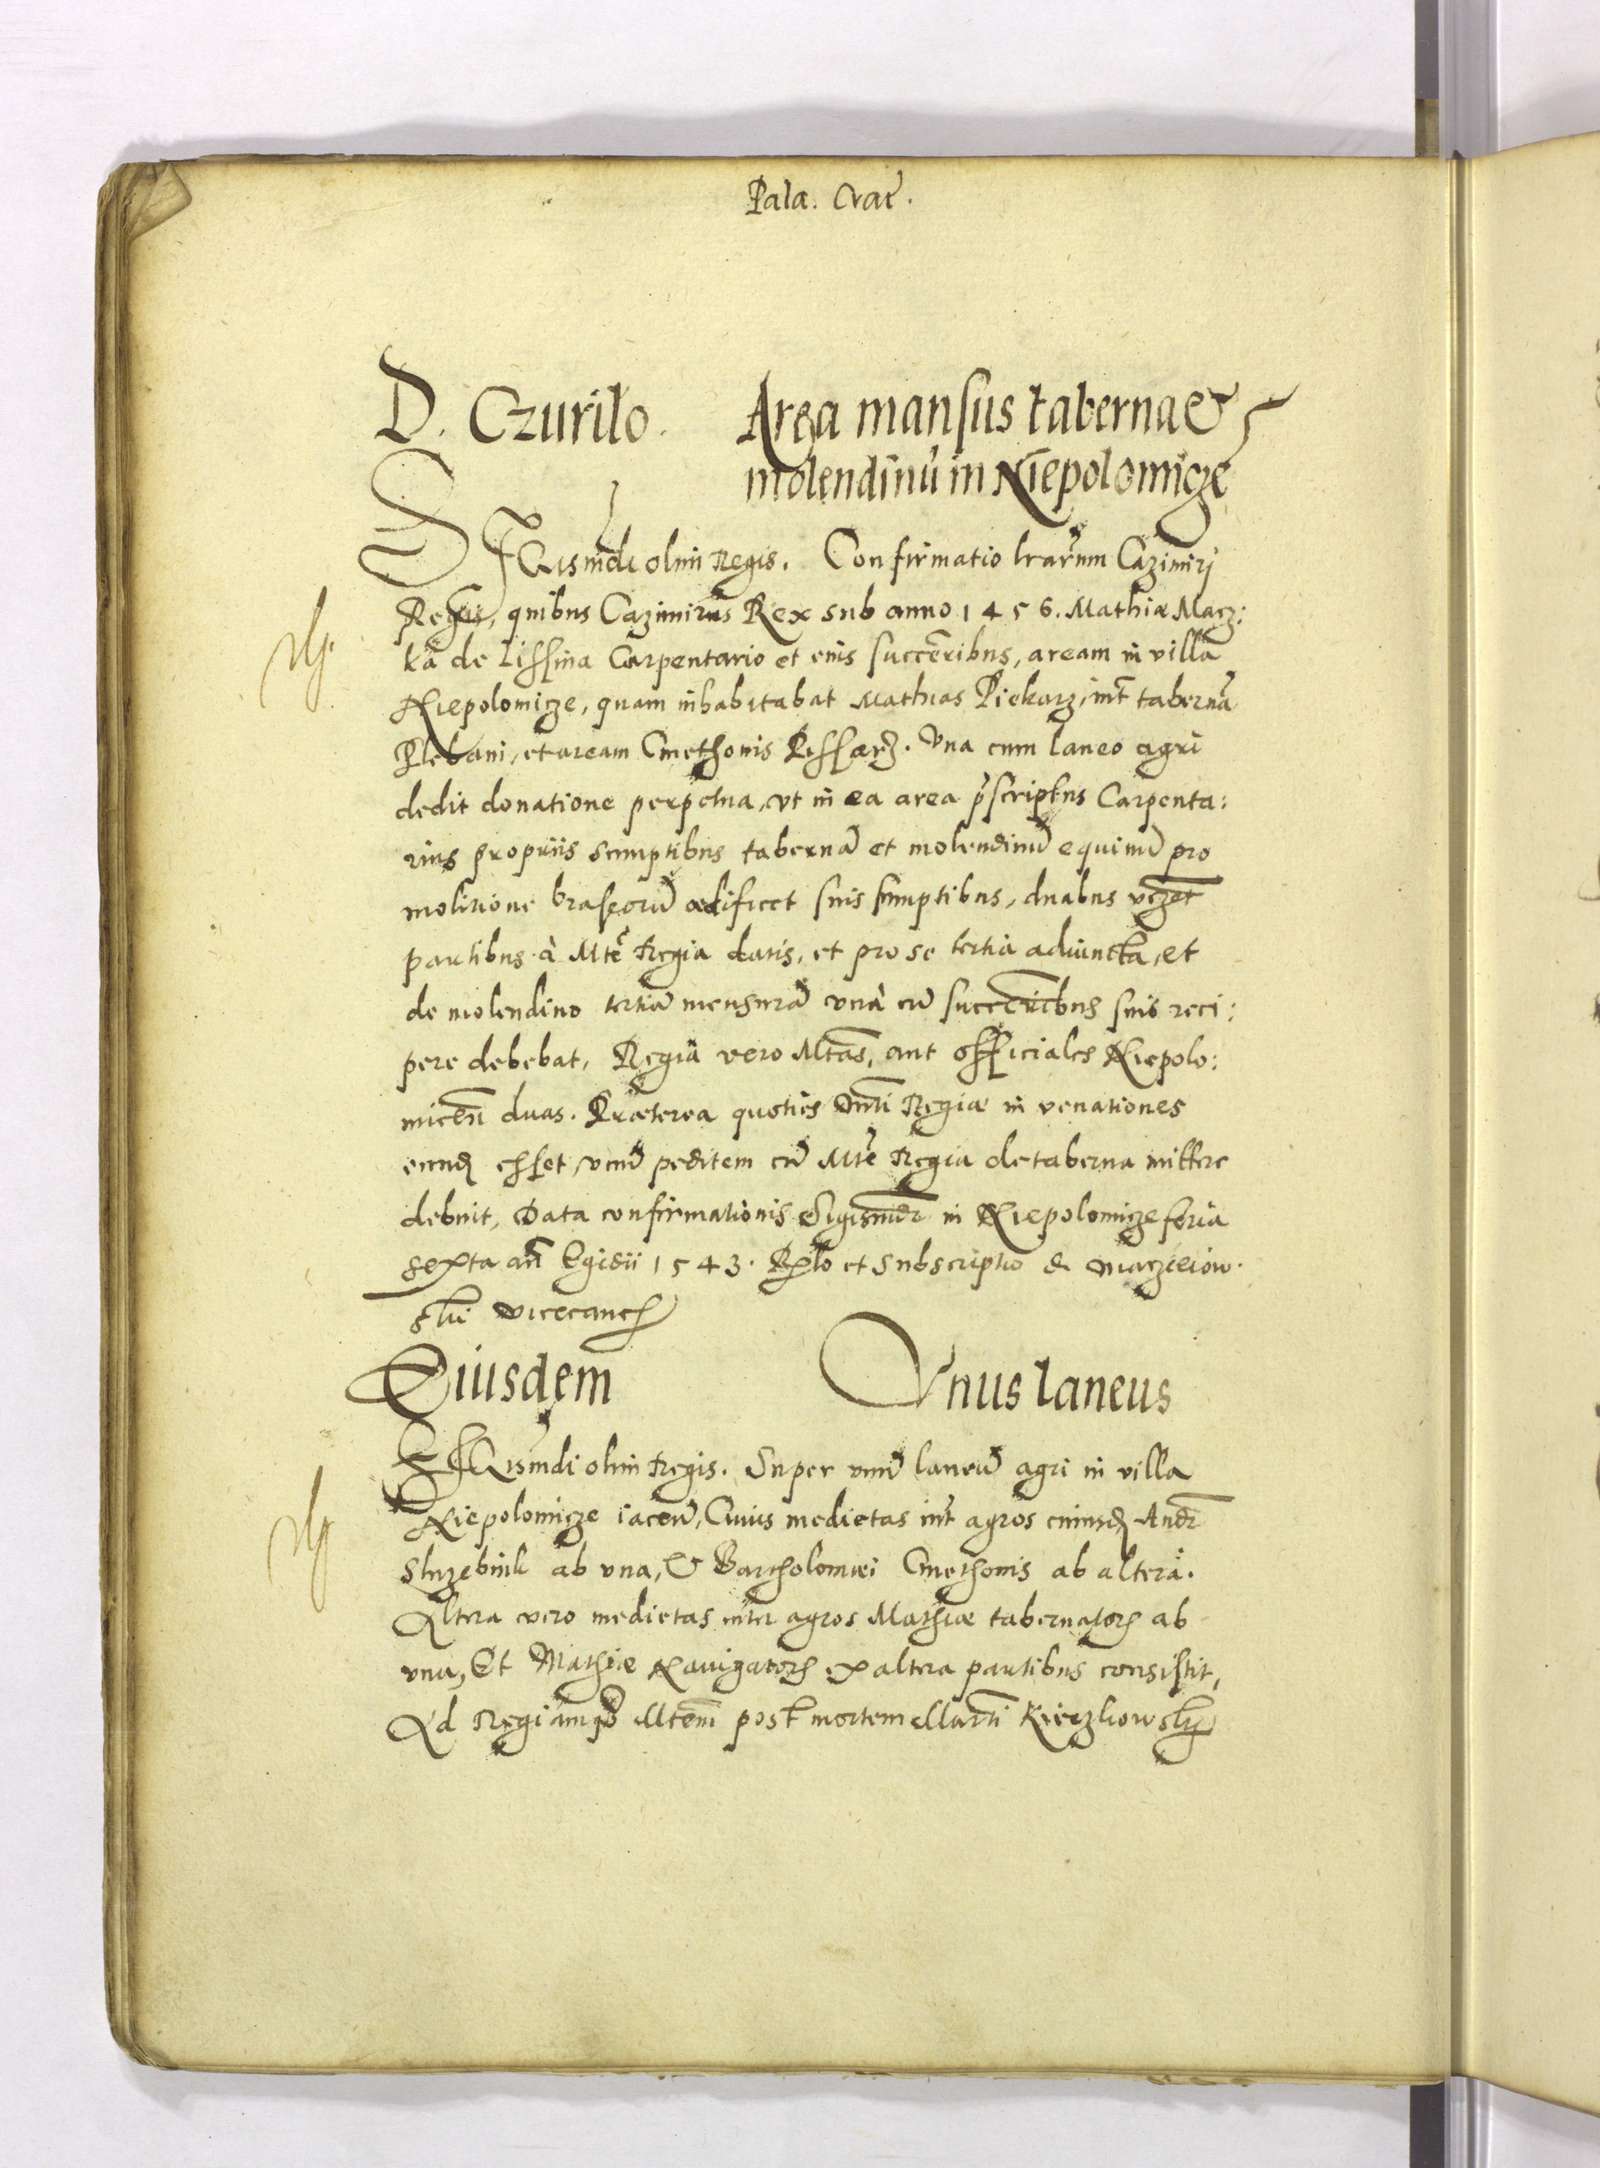 Pala. Crac̃.
D. Czuriło. Area mansus taberna &
molendinũ in Niepolomicze
Eiusmdi olim Regis. Confirmatio lrarum Cazimirj
Regis, quibus Cazimirus Rex sub anno 1456. Mathiæ Marz:
ka de Lissina Carpentario et eius succẽribus, aream in villa
Niepolomicze, quam inhabitabat Mathias Piekarz, int̃ tabernã
Plebani, et aream Cmethonis . Vna cum laneo agri
dedit donatione perpetua, vt in ea area p̃scriptus Carpenta:
rius propriis sumptibus tabernã et molendinũ equinũ pro
molitione braseorũ ædificet suis sumptibus, duabus
partibus à Mtẽ Regia datis, et pro se tertia adiuncta, et
de molendino tertiã mensurã vnà cũ succẽribus suis reci:
pere debebat, Regia vero Mtas̃, aut officiales Niepolo:
miceñ duas. Præterea quoties Mti Regiæ in venationes
eund esset, vnũ peditem cũ Mtẽ Regia de taberna mittere
debuit, Data confirmationis Sigismdi in Niepolomicze feria
sexta añ Egidii 1543. Rlo et subscriptio D. Macieiow:
skĩ vicecanc
Eiusdem Vnus laneus
Eiusmdi olim Regis. Super vnũ laneũ agri in villa
Niepolomicze iaceñ, Cuius medietas int̃ agros Andr̃
Sluzebnik ab vna, & Bartholomæi Cmethonis ab altera.
Altera vero medietas inter agros Mathiæ tabernatoris ab
vna, Et Mathiæ Nauigatoris ex altera partibus consistit,
Ad Regiamq Mtem̃ post mortem Marti Kieczkowsky